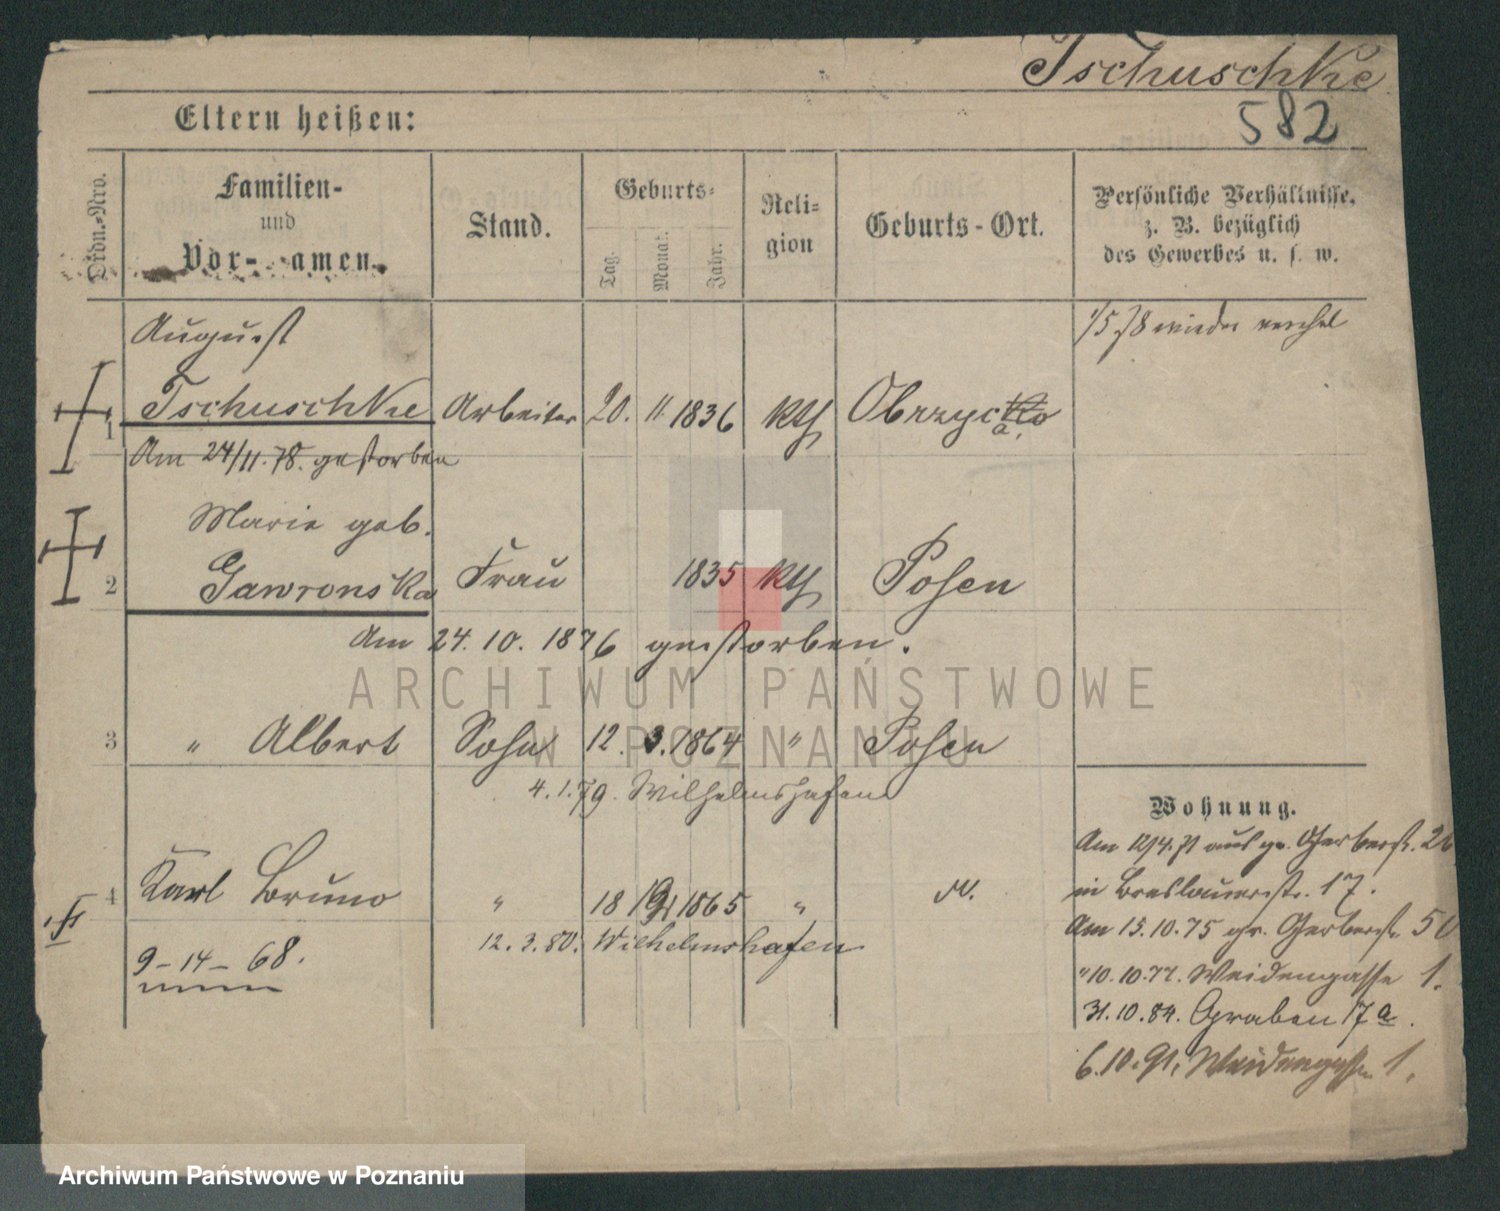 Tschuschke
582
Eltern heißen:
Ordn.-Nro.
Familien- und Vor- amen.
Stand.
Geburts-
Tag.
Monat.
Jahr.
Reli-
gion
Geburts-Ort.
Persönliche Verhältnisse,
z. B. bezüglich
des Gewerbes u. s. w.
August
1/5 78 wieder verehel
1 Tschuschke Arbeiter 20. 11. 1836 kth Obrzycko
a.
Am 24/11. 78. gestorben
Marie geb.
2 Gawronska Frau 1835 kth Posen
Am 24. 10. 1876 gestorben.
ARCHIWUM PAŃSTWOWE
W POZNANIU
3 " Albert Sohn 12. 3. 1864 " Posen
4. 1. 79. Wilhelmshafen
Wohnung.
Am 12/4. 71 aus gr. Gerberstr. 26
4 Karl Bruno " 18 1865 "
in Breslauerstr. 17.
Am 15. 10. 75 gr. Gerberstr. 50
12. 3. 80. Wilhelmshafen
9-14-68.
"10. 10. 77. Weidengasse 1.
31. 10. 84. Graben 17 a.
6. 10. 91. Weidengasse 1.
Archiwum Państwowe w Poznaniu